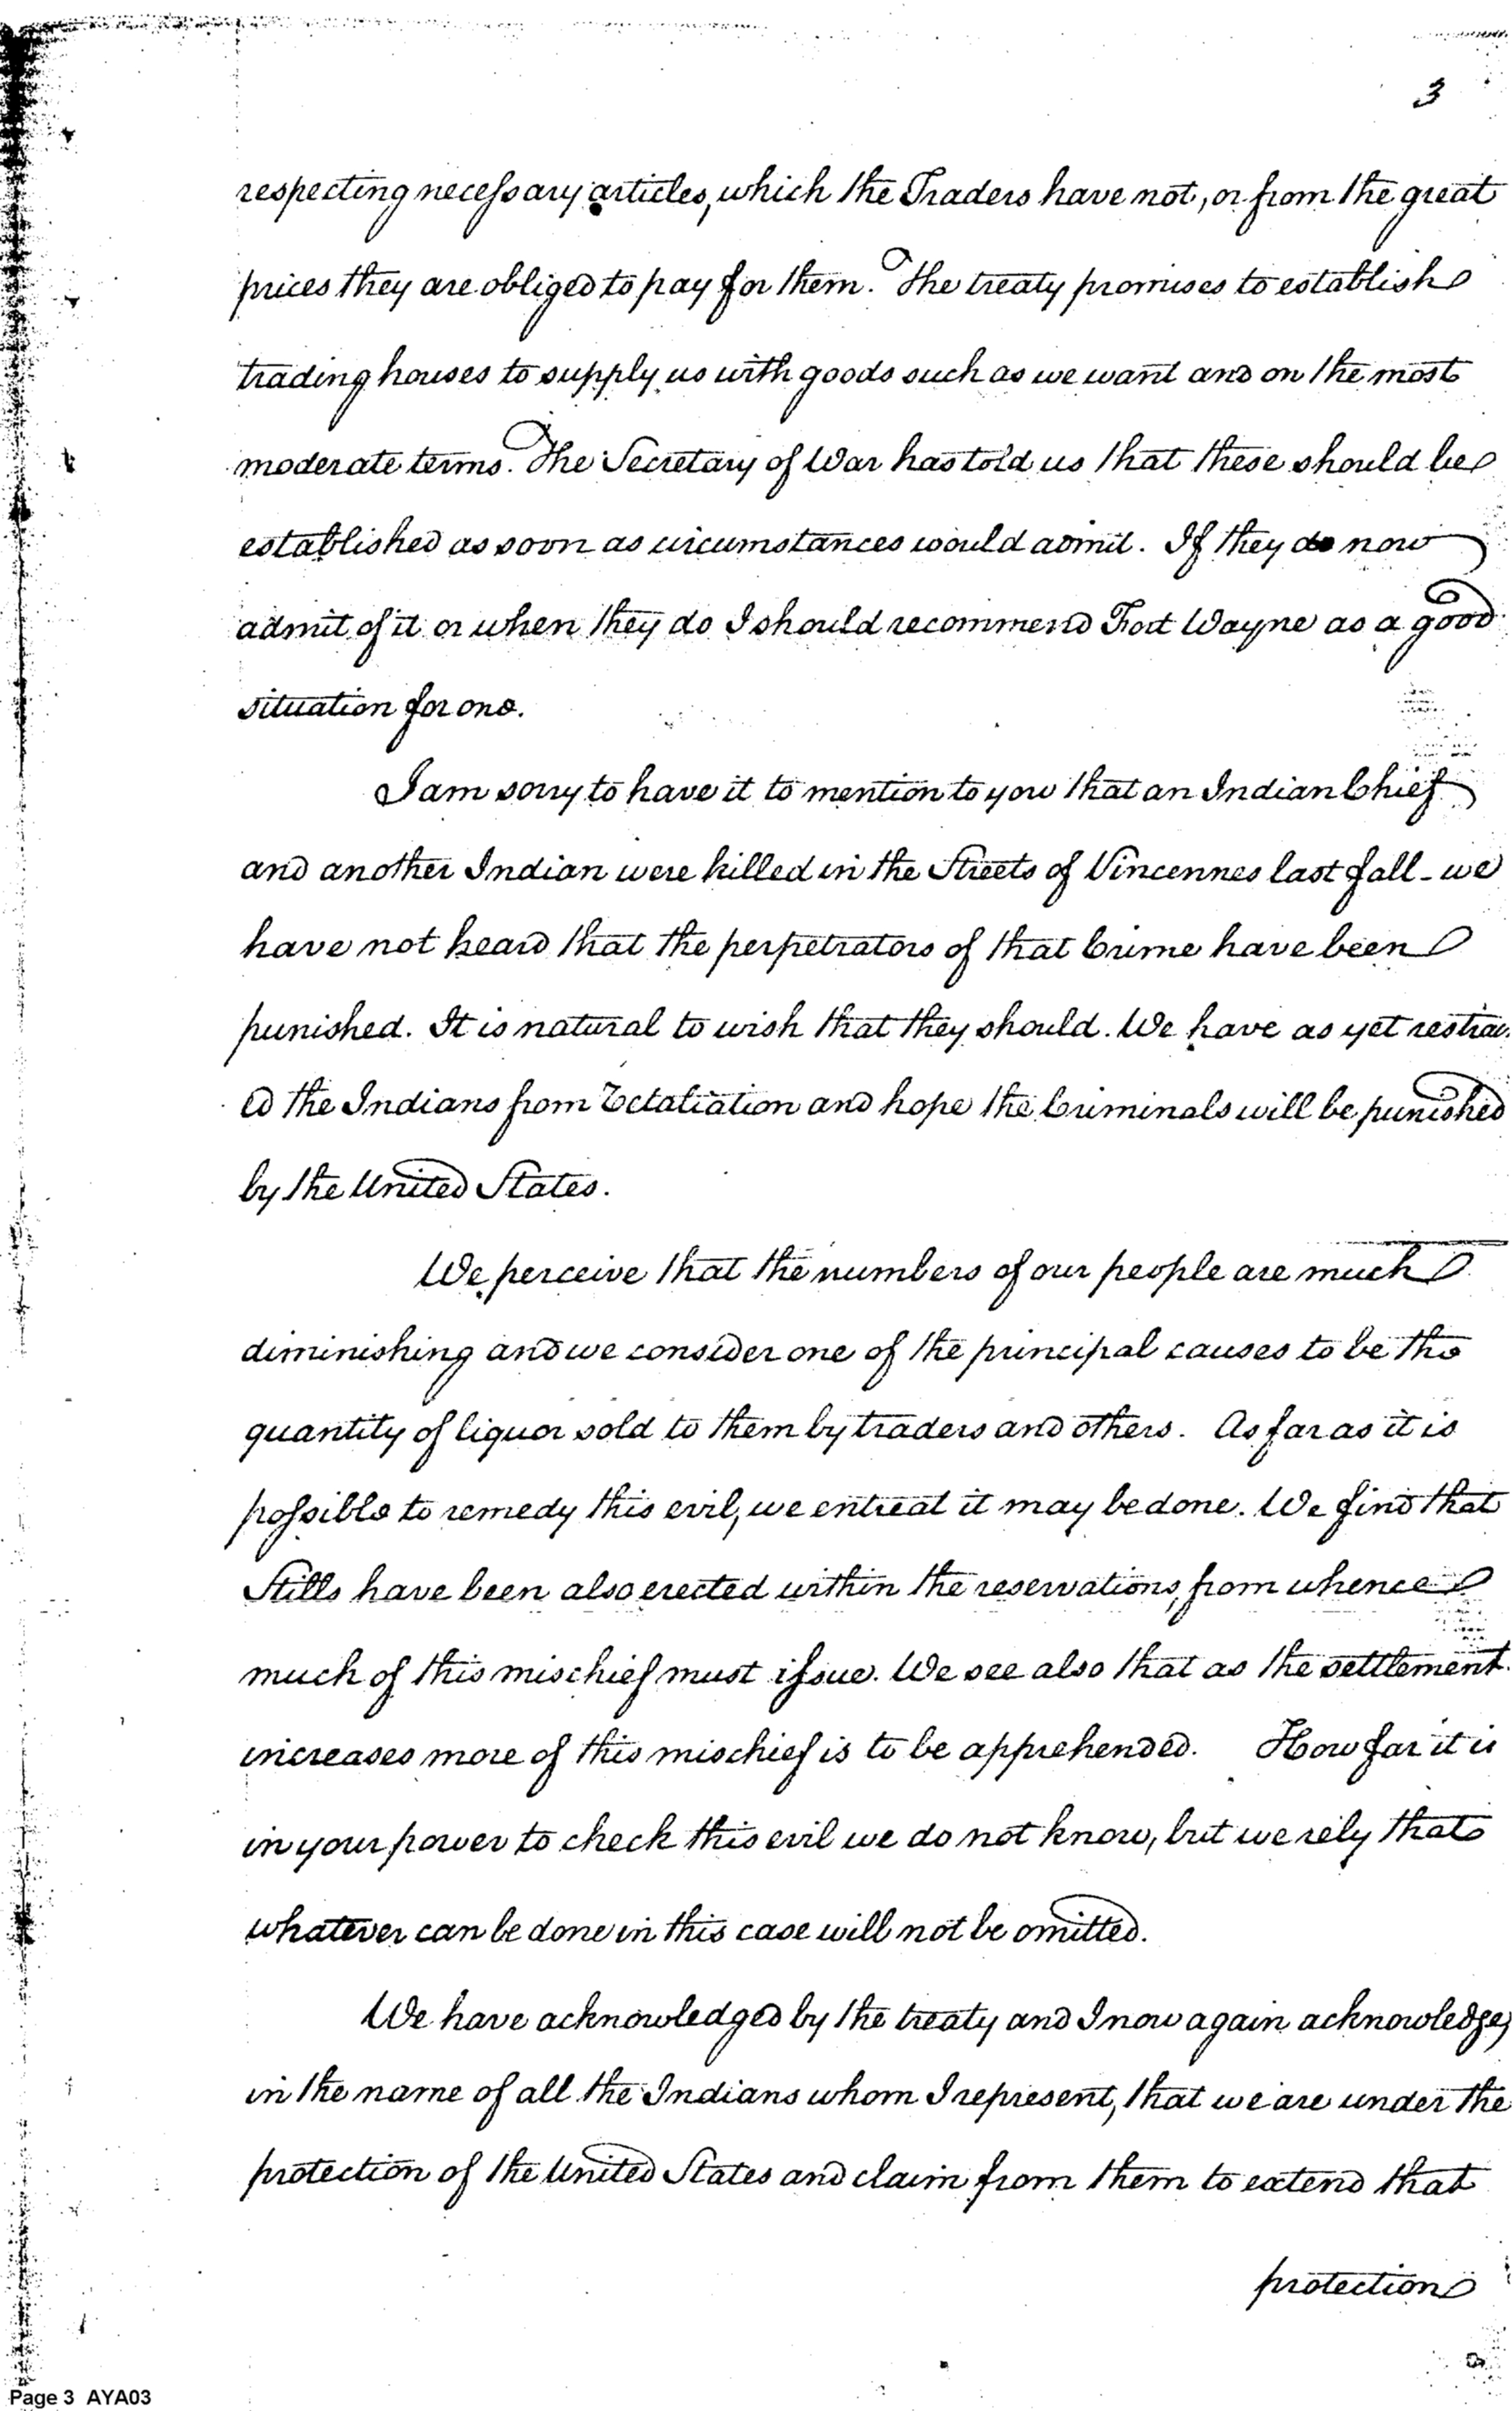 3
respecting necessary articles, which the Traders have not, or from the great
prices they are obliged to pay for them. The treaty promises to establish
trading houses to supply us with goods such as we want and on the most
moderate terms. The Secretary of War has told us that these should be
established as soon as circumstances would admit. If they do now
admit of it or when they do I should recommend Fort Wayne as a good
situation for one.
I am sorry to have it to mention to you that an Indian Chief
and another Indian were killed in the Streets of Vincennes last fall - we
have not heard that the perpetrators of that Crime have been
punished. It is natural to wish that they should. We have as yet restrai
ed the Indians from Retaliation and hope the Criminals will be punished
by the United States.
We perceive that the numbers of our people are much
diminishing and we consider one of the principal causes to be the
quantity of liquor sold to them by traders and others. As far as it is
possible to remedy this evil, we entreat it may be done. We find that
Stills have been also erected within the reservations, from whence
much of this mischief must issue. We see also that as the settlement
increases more of this mischief is to be apprehended. How far it is
in your power to check this evil we do not know, but we rely that
whatever can be done in this case will not be omitted.
We have acknowledged by the treaty and I now again acknowledge,
in the name of all the Indians whom I represent, that we are under the
protection of the United States and claim from them to extend that
protection
Page 3 AYA03